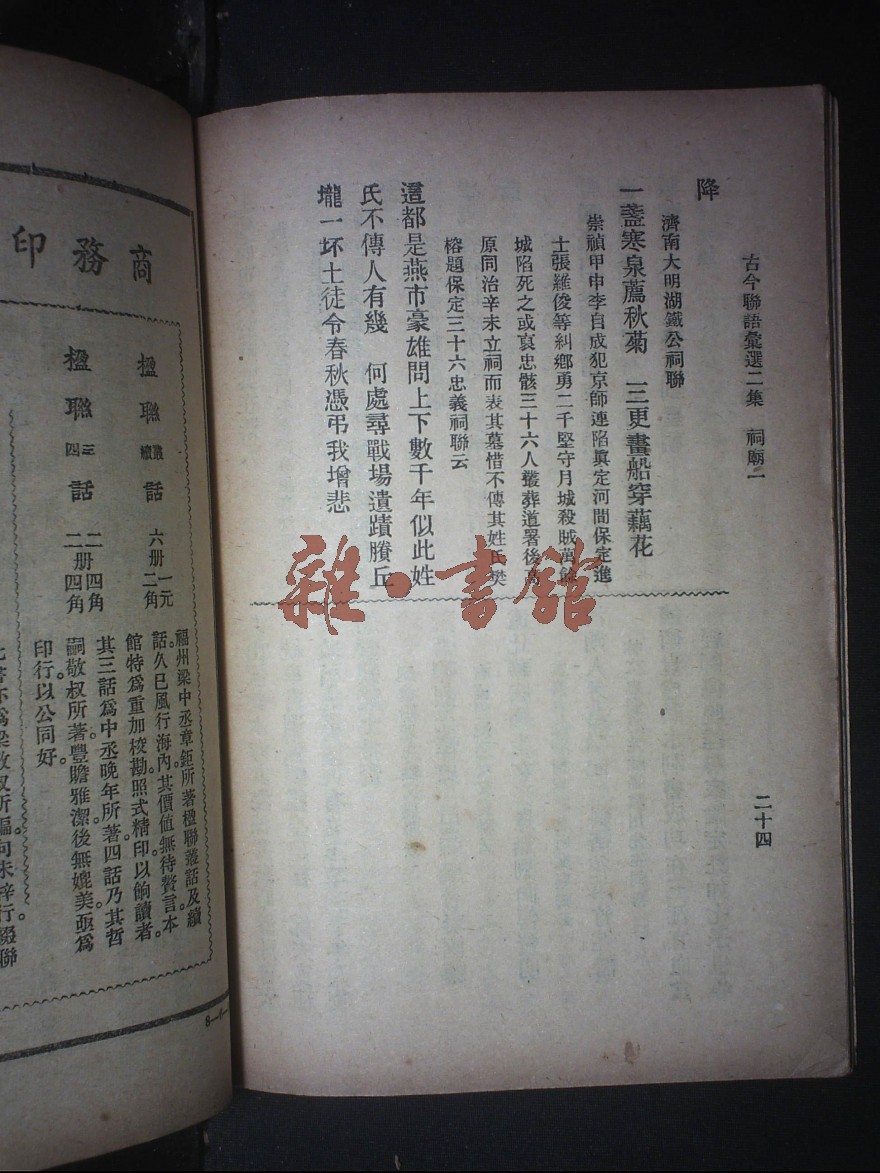 古今聯語彙選二集　祠廟一
二十四
降
濟南大明湖鐵公祠聯
一盞寒泉薦秋菊　三更畫船穿藕花
崇禎甲申李自成犯京師連陷眞定河間保定進
士張維俊等糾鄉勇二千堅守月城殺賊萬餘
城陷死之或裒忠骸三十六人叢葬道署後高
原同治辛未立祠而表其墓惜不傳其姓氏樊
榕題保定三十六忠義祠聯云
這都是燕市豪雄問上下數千年似此姓
氏不傳人有幾　何處尋戰場遺蹟賸丘
壠一坏土徒令春秋憑弔我增悲
雜·書館
商務印
楹聯叢續話　六册　一元二角
楹聯三四話　二册　二角四角
福州梁中丞章鉅所著楹聯叢話及續
話。久已風行海內。其價值無待贅言。本
館特爲重加校勘。照式精印。以餉讀者。
其三話爲中丞晚年所著。四話乃其哲
嗣敬叔所著。豐贍雅潔。後無媲美。亟爲
印行。以公同好。